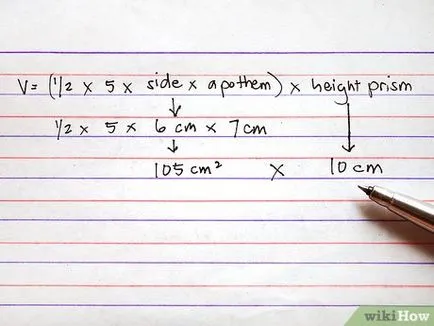 V= (1/2 x 5 x side x apothem) x height prism
1/2 x 5 x 6 cm x 7cm
105 cm² x 10 cm
wikiHow